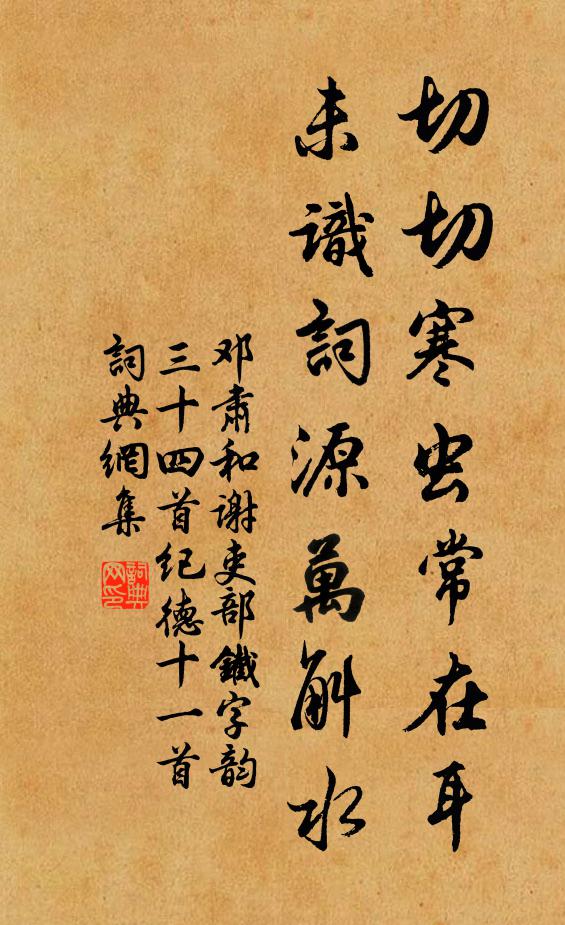 切切寒虫常在耳
未識詞源萬斛水
邓肅和谢吏部鐵字韵
三十四首纪德十一首
詞典網集
詞典网印